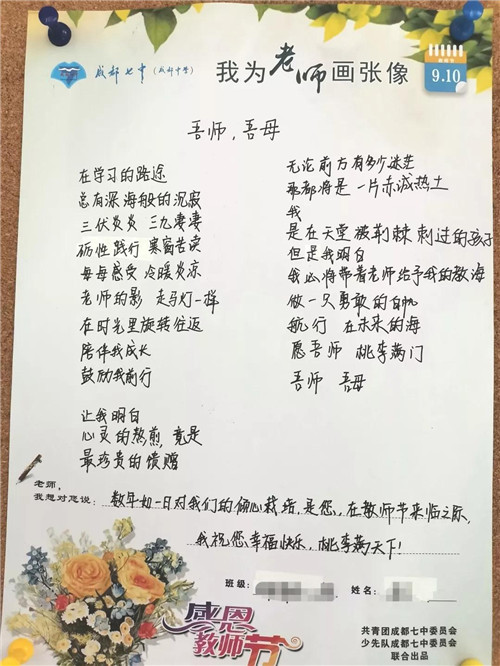 成都七中(成都中学)
我为老师画张像
教师节
9.10
吾师,吾母
在学习的路途
总有深海般的沉寂
三伏炎炎 三九凄凄
砺性践行 寒窗苦读
每每感受 冷暖炎凉
老师的影 走马灯一样
在时光里旋转往返
陪伴我成长
鼓励我前行
让我明白
心灵的熬煎,竟是
最珍贵的馈赠
无论前方有多少迷茫
那都将是一片赤诚热土
我
是在天堂被荆棘刺过的孩子
但是我明白
我必将带着老师给予我的教诲
做一只勇敢的白帆
航行 在未来的海
愿吾师 桃李满门
吾师 吾母
老师,
我想对您说:数年如一日对我们的倾心栽培,是您,在教师节来临之际,
我祝您幸福快乐,桃李满天下!
班级:
姓名:
感恩
教师节
共青团成都七中委员会
少先队成都七中委员会
联合出品